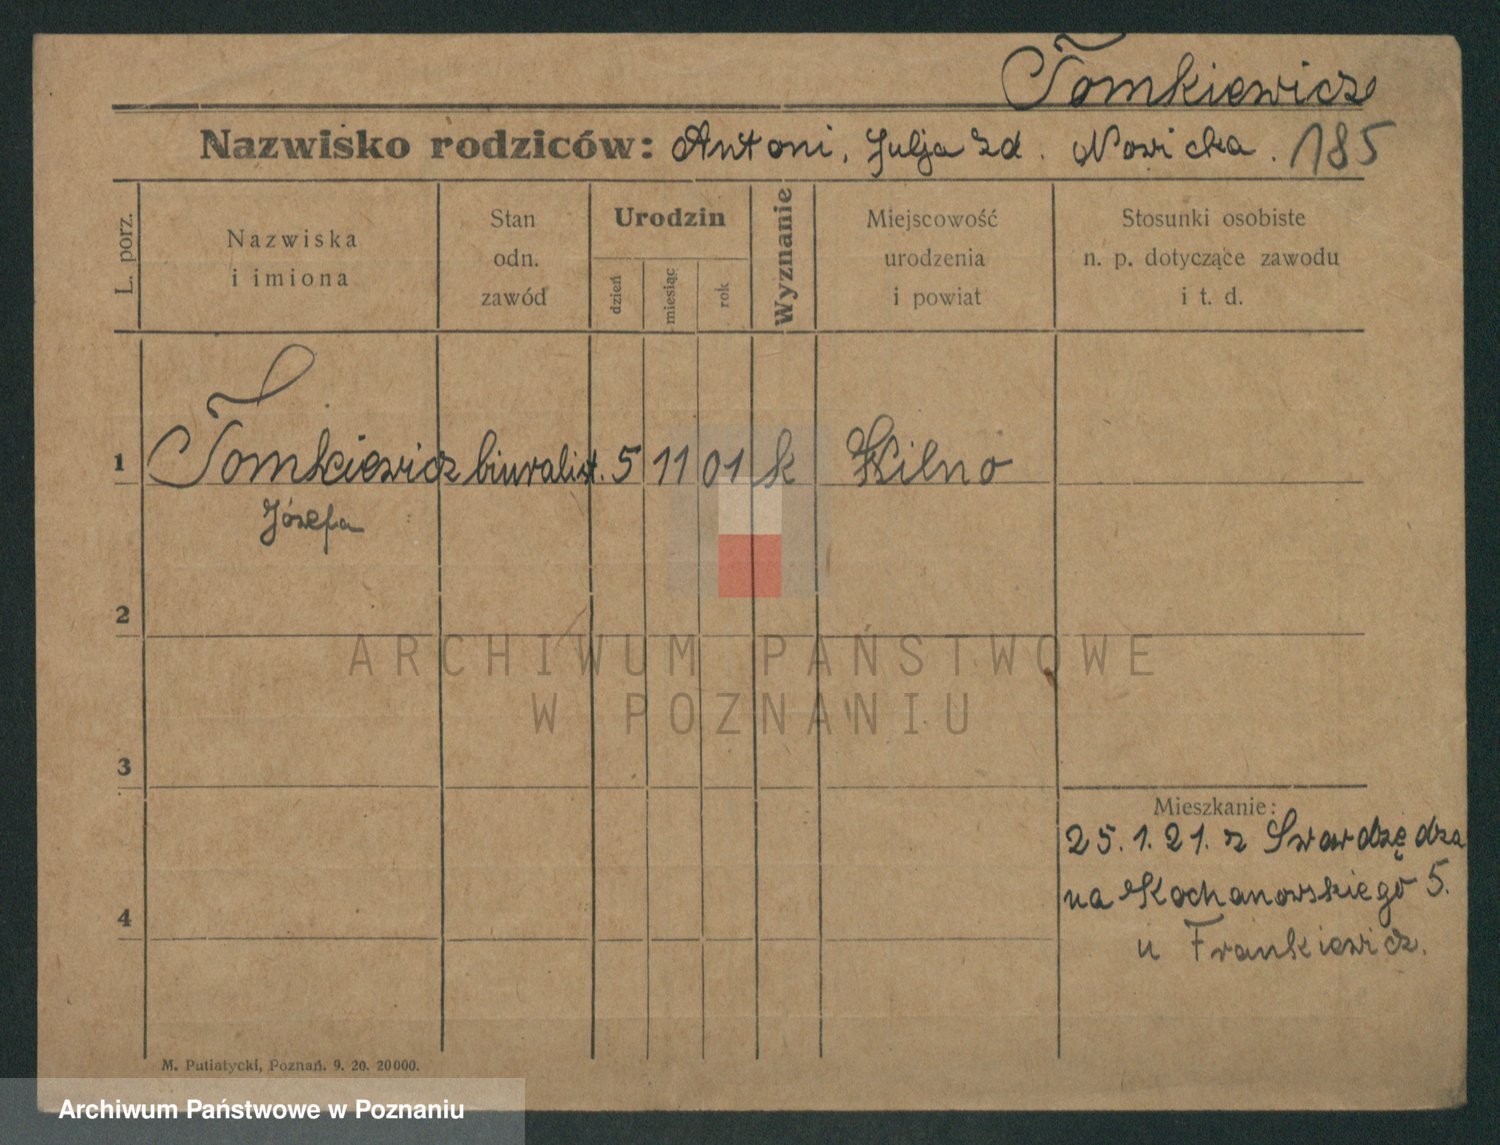 Tomkiewicz
Nazwisko rodziców: Antoni, Julja zd. Nowicka. 185
L. porz.
Nazwiska
i imiona
Stan
odn.
zawód
Urodzin
dzień
miesiąc
rok
Wyznanie
Miejscowość
urodzenia
i powiat
Stosunki osobiste
n. p. dotyczące zawodu
i t. d.
1 Tomkiewicz biuralist. 5 11 01 k Wilno
Józefa
2
ARCHIWUM PAŃSTWOWE
W POZNANIU
3
Mieszkanie:
25.1.21. z Swardzędza
na Kochanowskiego 5.
4
u Frankiewicz.
M. Putiatycki, Poznań. 9. 20. 20000.
Archiwum Państwowe w Poznaniu